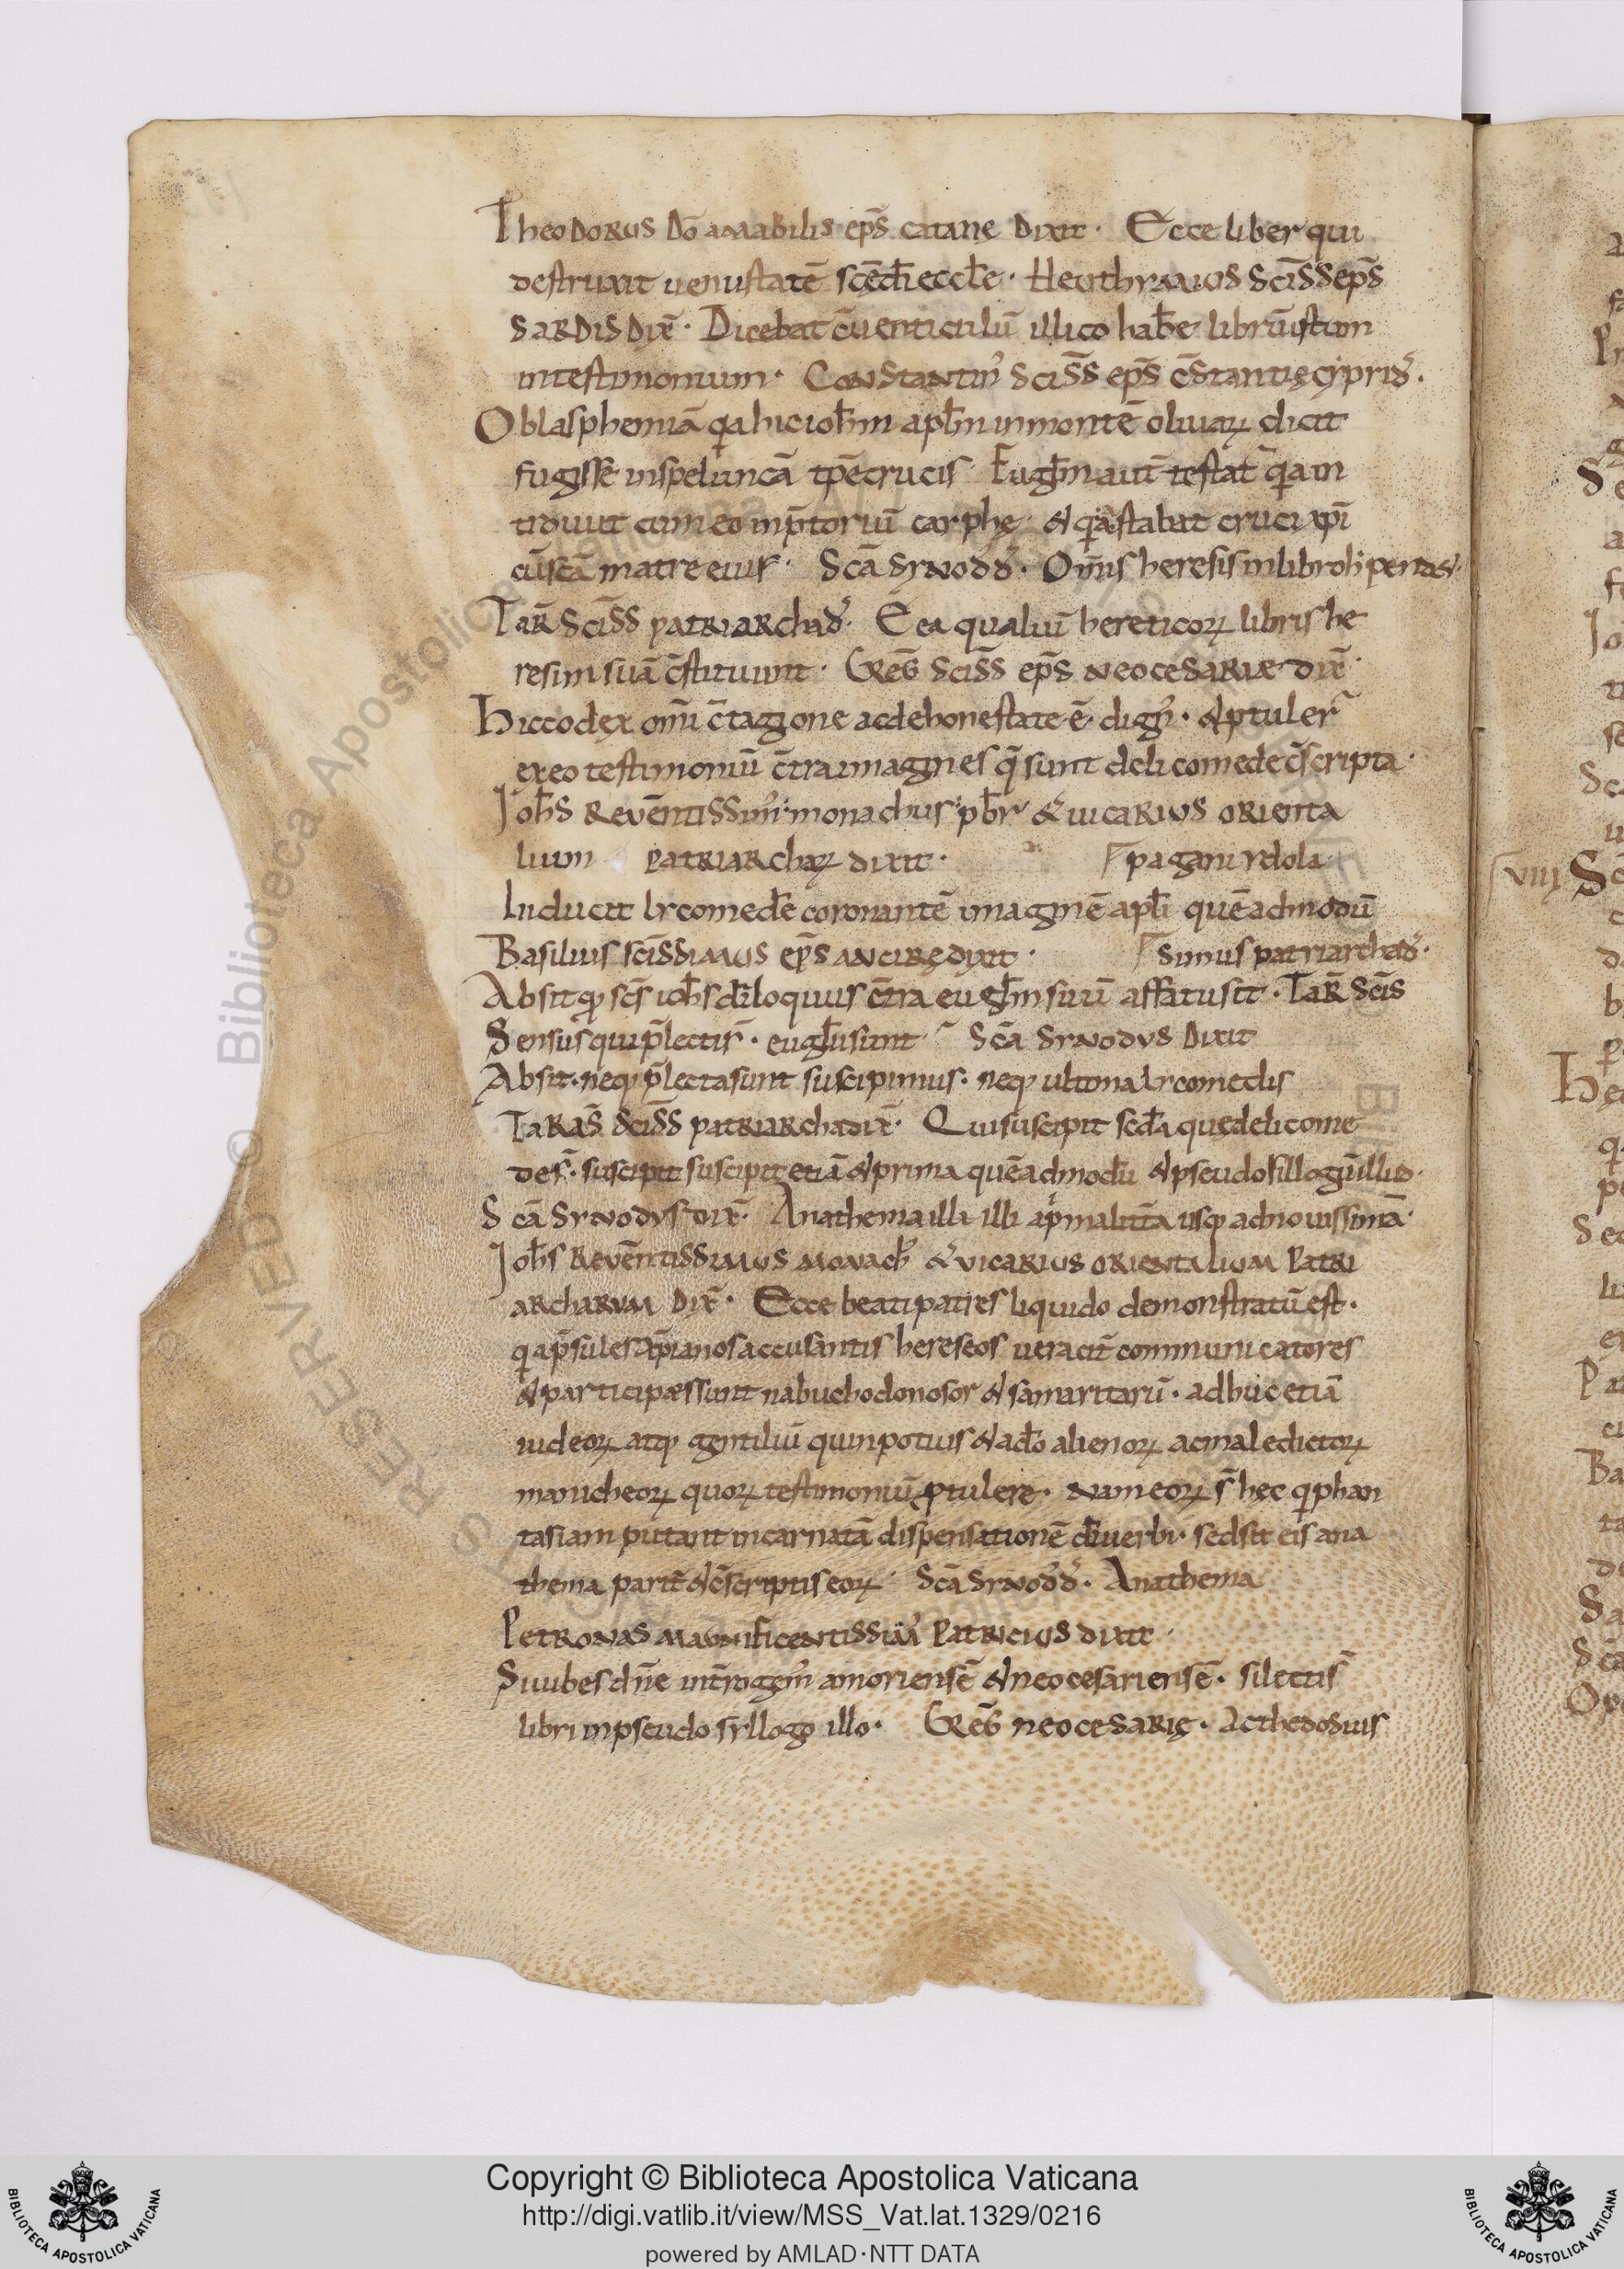 Theodorus dō amabilis ep̄s catane dixit· Ecce liber qui
destruxit uenustatē sc̄ę dī eccl̄e· Heuthymius sciss̄ ep̄s
sardis dix̄· Dicebat c̄uenticulū illico hab̄e librū istum
in testimonium· Constantin᾽ sciss̄ ep̄s c̄stantię cypri d᾽·
O blasphemiā q̄a hic ioh̄m apl̄m in montē oliuaꝝ dicit
fugisse in speluncā tp̄e crucis· Eugl̄m aut̄ testat̄ q̄a in
trouiit cum eo in p̄toriū caiphę· & q̄a stabat cruci xp̄i
cū sc̄a matre eius· Sc̄a synod᾽ d᾽· Omīs heresis in libro h̄ pendet·
Tar̄ sciss̄ patriarcha d᾽· E ea qu aliū hereticoꝝ libris he
resim suā c̄stituunt· Greḡ sciss̄ ep̄s neocesariae dix̄·
Hic codex om̄i c̄tagione ac dehonestate ē· dign᾽· & ꝓtuler̄
ex eo testimoniū c̄tra imagines q̄ sunt de licomede c̄scripta·
Joh̄s reuēntissim᾽ monachus pb̄r & uicarius orienta
lium patriarchaꝝ dixit· pagani idola·
Inducit lycomed̄e coronantē imaginē apl̄i quēadmodū
Basilius scissimus ep̄s ancirę dixit· simus patriarcha d᾽·
Absit qꝫ sc̄s ioh̄s dīloquus c̄tra eugl̄m suū affatus sit· Tar̄ scīs
Sensus qui p̄lecti s̄· eugl̄ii sunt Sc̄a synodus dixit
Absit· neqꝫ p̄lecta sunt suscipimus· neqꝫ ultima lycomedis
Taras̄ sciss̄ patriarcha dix̄· Qui suscipit sc̄da que de licome
de s̄· suscipit suscipit etiā & prima quēadmodū & pseudosillogū illud·
Sc̄a synodus dix̄· Anathema illi illi a p̄ma litt̄a usqꝫ ad nouissimā·
Joh̄s reuēntissimus monach᾽ & uicarius orientalium patri
archarum dix̄· Ecce beati patres liquido demonstratū est·
q̄a p̄sules xp̄ianos accusantis hereseos ueracit̄ communicatores
& participes sunt nabuchodonosor & samaritarū· adhuc etiā
iudeoꝝ atqꝫ gentiliū quin potius & a dō alienoꝝ ac maledictoꝝ
manicheoꝝ quoꝝ testimoniū ꝓtulere· nam eoꝝ s̄ hęc q̄ phan
tasiam putant incarnatā dispensationē dī uerbi· sed sit eis ana
thema parit̄ & c̄scriptis eoꝝ· Sc̄a synod᾽ d᾽· Anathema
Petronas magnificentissim᾽ patricius dixit·
Si iubes dn̄e int̄rogem᾽ amoriensē & neocesariensē· si lecti s̄
libri in pseudo syllogo illo· Greḡ neocesarię· ac thedosius
Copyright © Biblioteca Apostolica Vaticana
http://digi.vatlib.it/view/MSS_Vat.lat.1329/0216
powered by AMLAD·NTT DATA
BIBLIOTECA APOSTOLICA VATICANA
BIBLIOTECA APOSTOLICA VATICANA